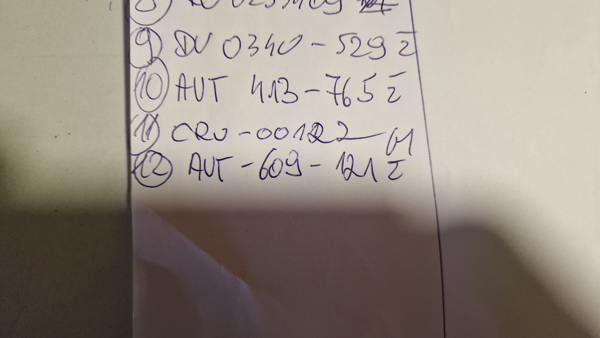 9 DU 0340-529 Ž
10 AUT 413-765 Ž
11 CRU-00122 M
12 AUT-609-121 Ž